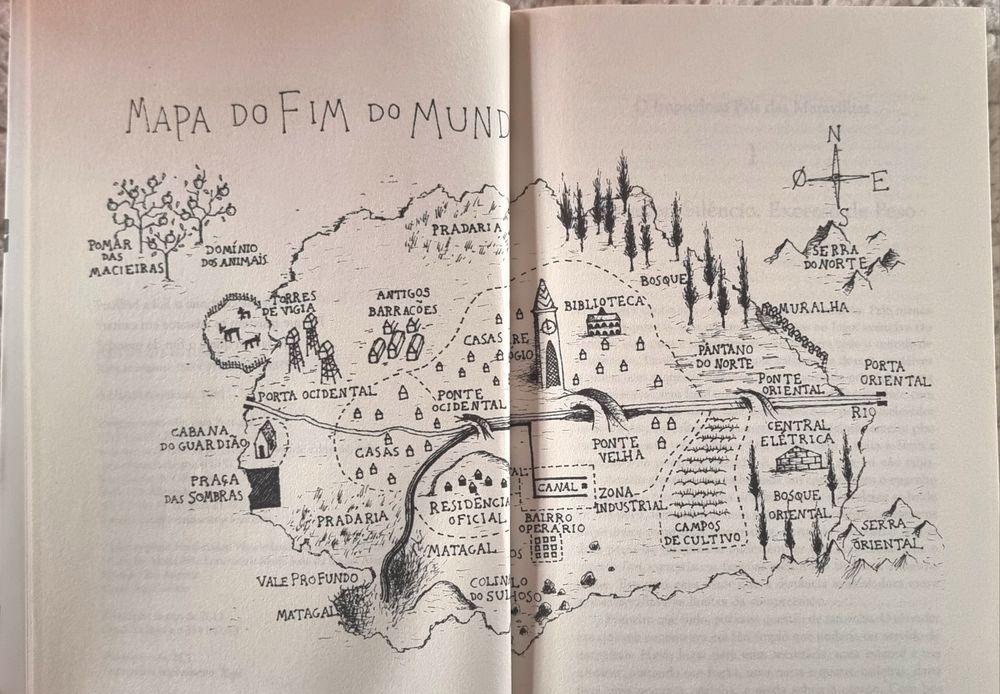 MAPA DO FIM DO MUND
N
Ø
E
S
POMAR
DAS
MACIEIRAS
DOMÍNIO
DOS ANIMAIS
PRADARIA
SERRA
DO NORTE
BOSQUE
TORRES
DE VIGIA
ANTIGOS
BARRACÕES
BIBLIOTECA
MURALHA
CASAS
RE
ÓGIO
PÂNTANO
DO NORTE
PORTA OCIDENTAL
PONTE
OCIDENTAL
PONTE
ORIENTAL
PORTA
ORIENTAL
RIO
CABANA
DO GUARDIÃO
CASAS
PONTE
VELHA
CENTRAL
ELÉTRICA
PRAÇA
DAS SOMBRAS
RESIDÊNCIA
OFICIAL
CANAL
ZONA
INDUSTRIAL
BOSQUE
ORIENTAL
PRADARIA
BAIRRO
OPERÁRIO
CAMPOS
DE CULTIVO
SERRA
ORIENTAL
MATAGAL
VALE PROFUNDO
COLIN
DO SUL
MATAGAL